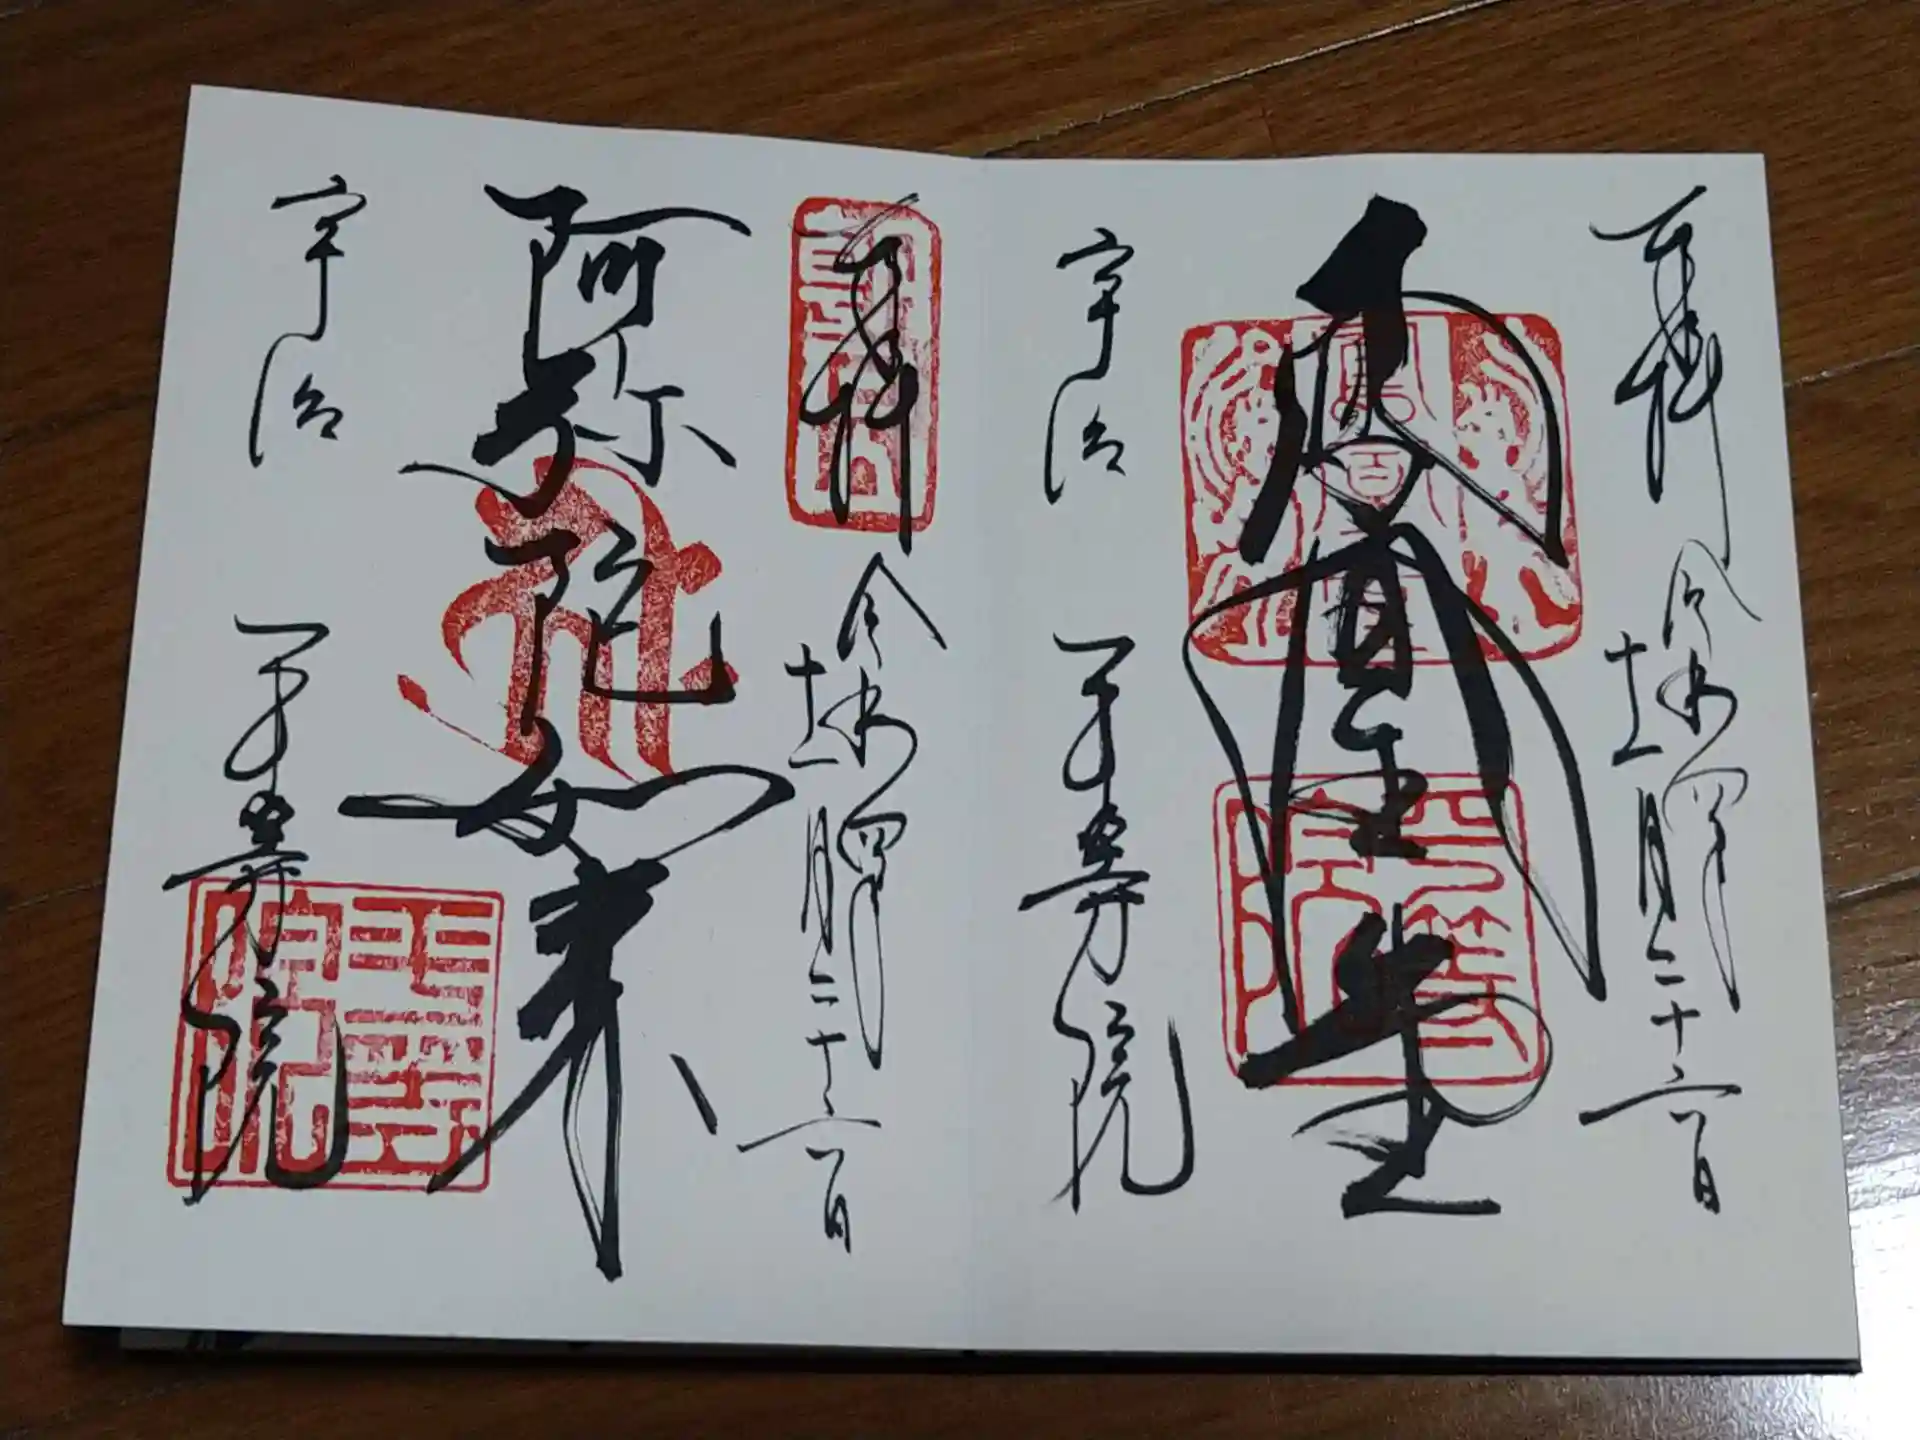 奉拝
令和四年
十一月二十六日
鳳凰堂
宇治
平等院
平等院
奉拝
令和四年
十一月二十六日
阿弥陀如来
宇治
平等院
平等院